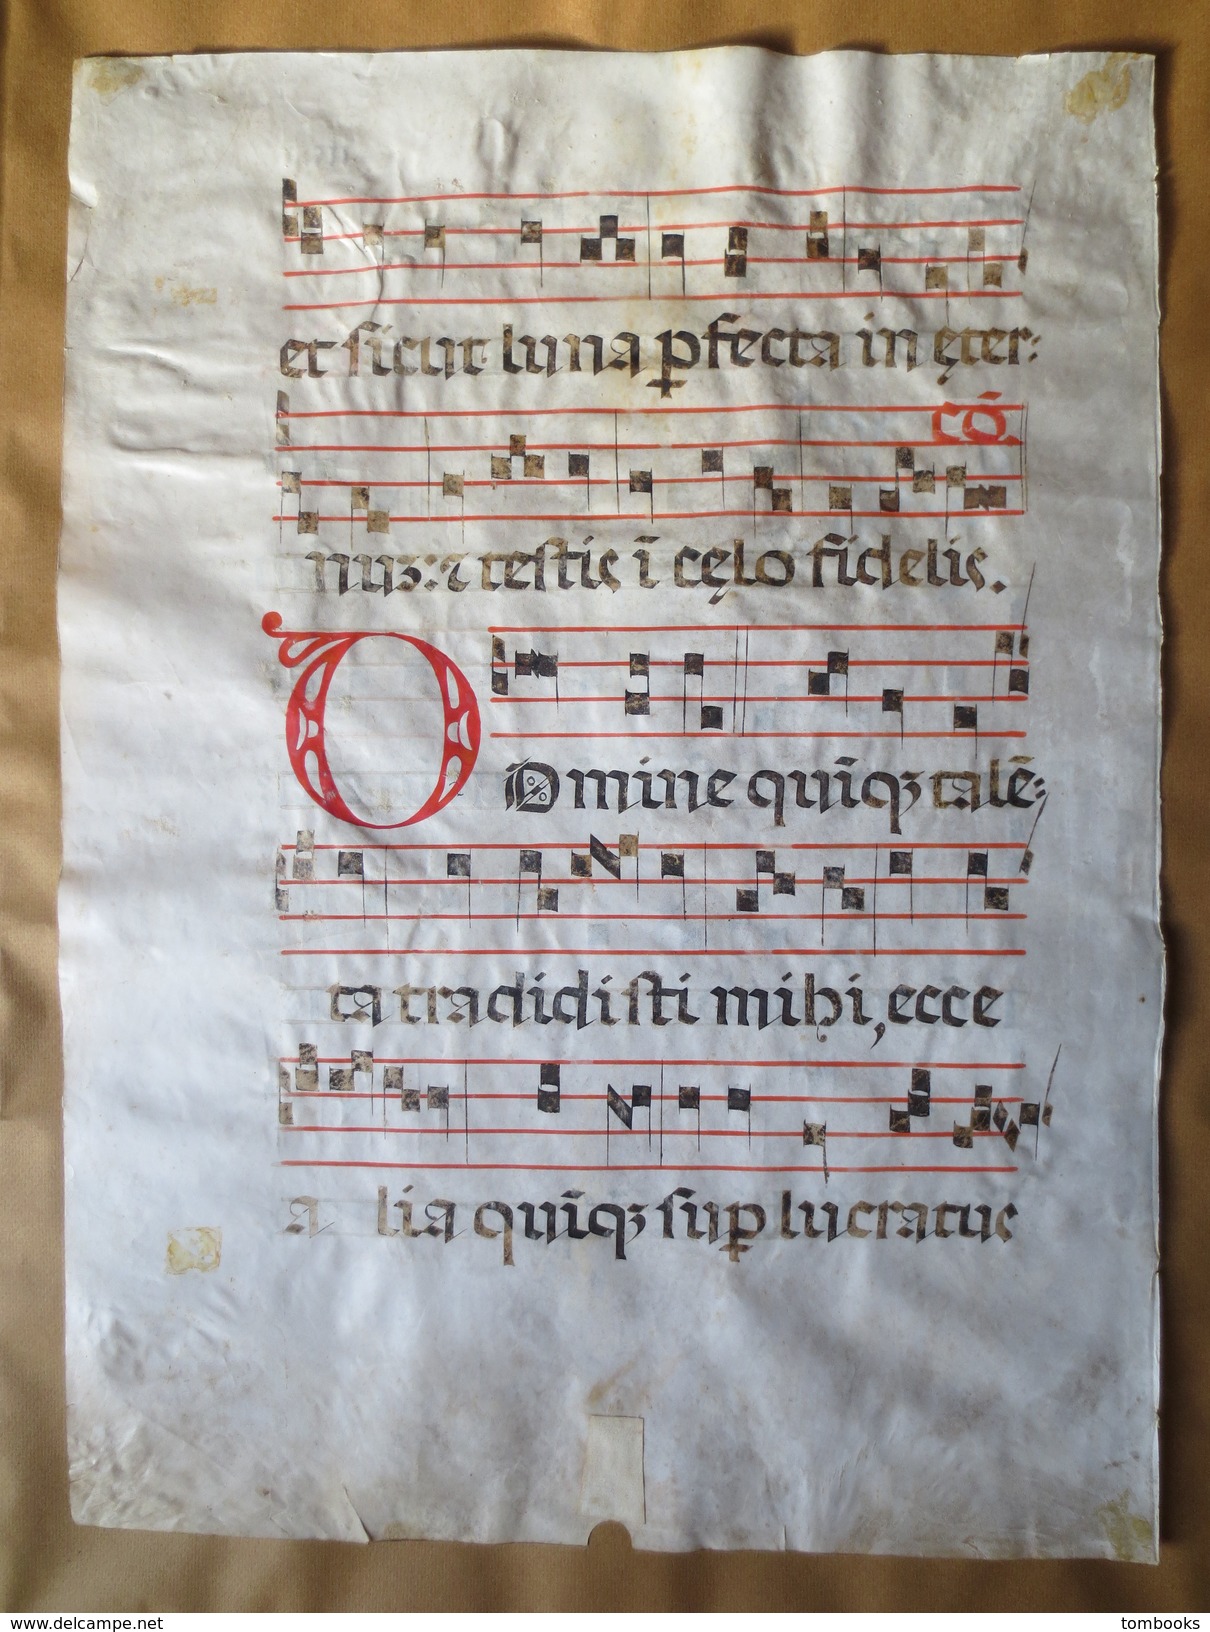 et sicut luna ꝑfecta in ęter:
cō.
nuꝫ: ⁊ testis ī cęlo fidelis.
DOmine quīqꝫ talē:
ta tradidisti mihi, ecce
a lia quīqꝫ suꝑ lucratus
www.delcampe.net
tombooks